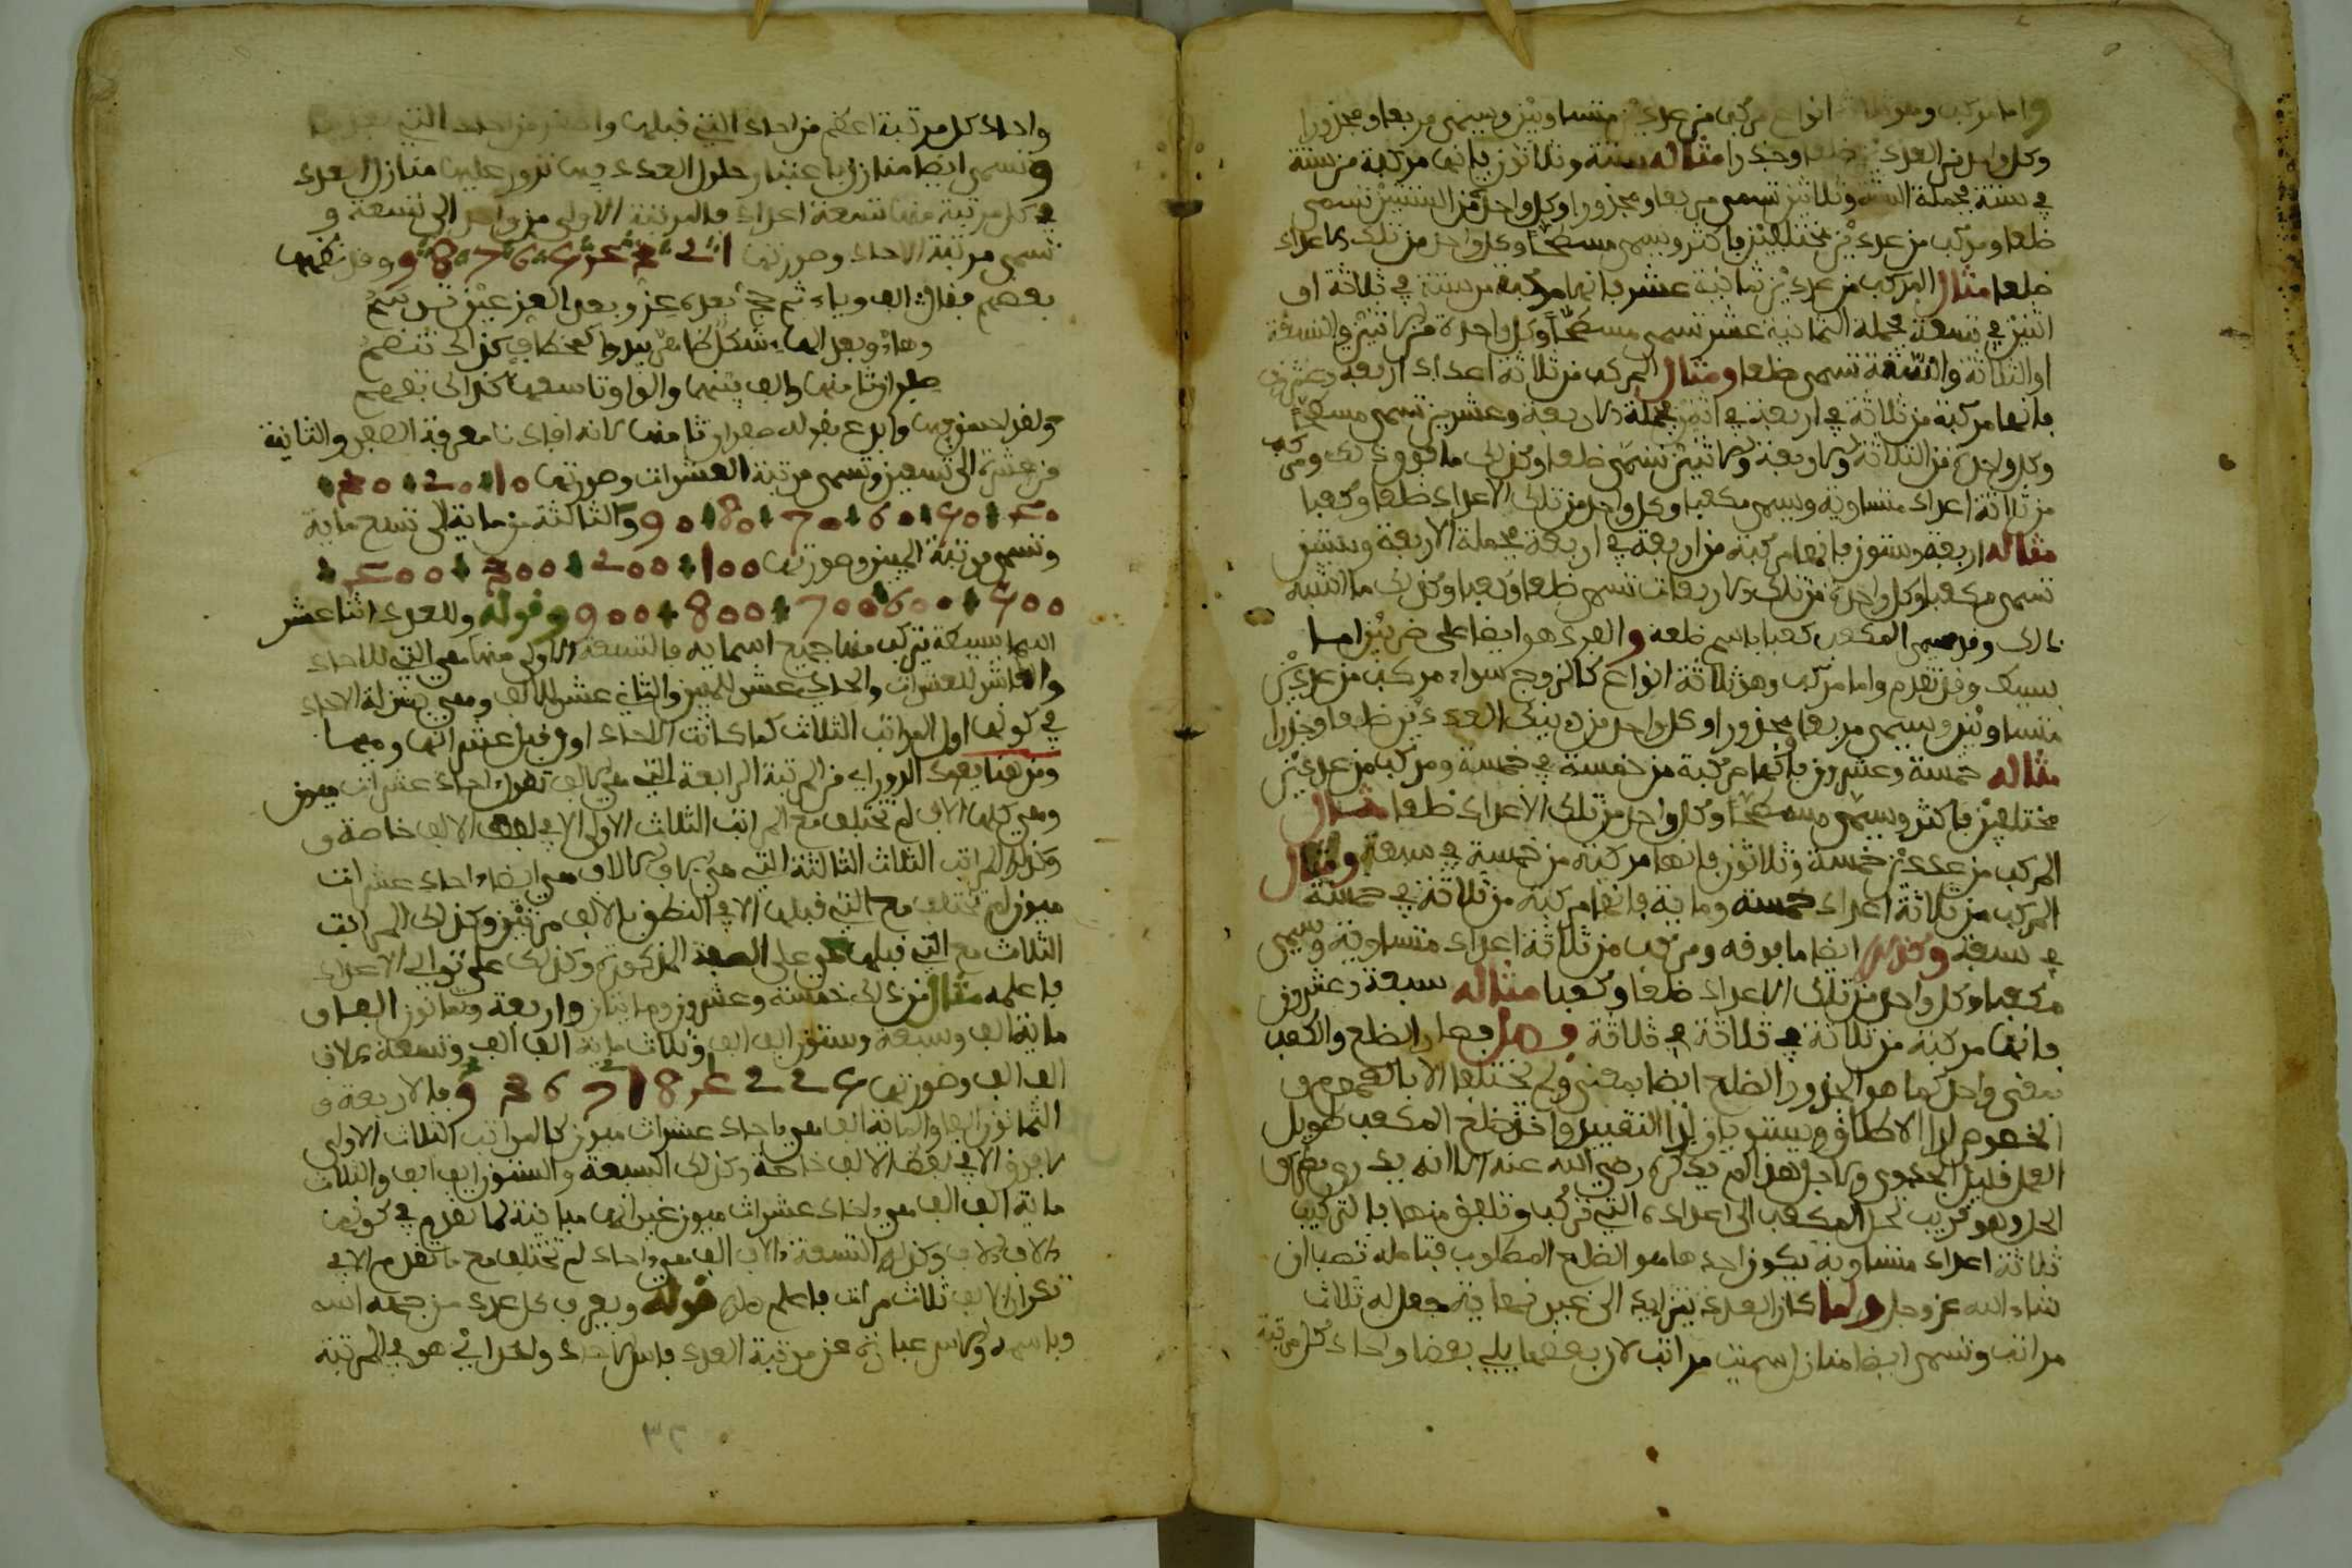 واما مركب وهو ثلاثة انواع مركب من عددين متساويين ويسمى مربعا ومجذورا
وكل واحد من العددين ضلعا وجذرا مثاله ستة وثلاثون فانها مركبة من ستة
في ستة فجملة الستة وثلاثين تسمى مربعا ومجذورا وكل واحد من الستتين تسمى
ضلعا ومركب من عددين مختلفين فاكثر ويسمى مسطحا وكل واحد من تلك الاعداد
ضلعا مثال المركب من عددين ثمانية عشر فانها مركبة من ستة في ثلاثة او
اثنين في تسعة فجملة الثمانية عشر تسمى مسطحا وكل واحدة من الاثنين والتسعة
او الثلاثة والستة تسمى ضلعا ومثال المركب من ثلاثة اعداد اربعة وعشرون
فانها مركبة من ثلاثة في اربعة في اثنين فجملة الاربعة وعشرين تسمى مسطحا
وكل واحدة من الثلاثة والاربعة والاثنين تسمى ضلعا وكذلك ما فوق ذلك ومركب
من ثلاثة اعداد متساوية ويسمى مكعبا وكل واحد من تلك الاعداد ضلعا وكعبا
مثاله اربعة وستون فانها مركبة من اربعة في اربعة فجملة الاربعة وستين
تسمى مكعبا وكل واحدة من تلك الاربعات تسمى ضلعا وكعبا وكذلك ما اشبه
ذلك وقد يسمى المكعب كعبا باسم ضلعه والفرد هو ايضا على ضربين اما
بسيط وقد تقدم واما مركب وهو ثلاثة انواع كالزوج سواء مركب من عددين
متساويين ويسمى مربعا ومجذورا وكل واحد من ذينك العددين ضلعا وجذرا
مثاله خمسة وعشرون فانها مركبة من خمسة في خمسة ومركب من عددين
مختلفين فاكثر ويسمى مسطحا وكل واحد من تلك الاعداد ضلعا مثال
المركب من عددين خمسة وثلاثون فانها مركبة من خمسة في سبعة ومثال
المركب من ثلاثة اعداد خمسة وماية فانها مركبة من ثلاثة في خمسة
في سبعة وكذلك ايضا ما فوقه ومركب من ثلاثة اعداد متساوية ويسمى
مكعبا وكل واحد من تلك الاعداد ضلعا وكعبا مثاله سبعة وعشرون
فانها مركبة من ثلاثة في ثلاثة في ثلاثة فصار الضلع والكعب
بمعنى واحد كما هو الجذر والضلع ايضا بمعنى ولم يختلفا الا بالعموم و
الخصوص لدا الاطلاق ويستويان لدا التقييد واخذ ضلع المكعب طويل
العمل قليل الجدوى ولاجل هذا لم يذكره رضي الله عنه الا انه يدري بطرف
الحل وهو قريب تحل المكعب الى اعداده التي تركب وتلفق منها بالتركيب
ثلاثة اعداد متساوية يكون احدها هو الضلع المطلوب فتامله تصب ان
شاء الله عز وجل ولما كان العدد يتزايد الى غير نهاية جعل له ثلاث
مراتب وتسمى ايضا منازل سميت مراتب لان بعضها يلي بعضا واحاد كل مرتبة
واحاد كل مرتبة اعظم من احاد التي قبلها واصغر من احاد التي بعدها
وتسمى ايضا منازل باعتبار حلول العدد فيها تدور عليها منازل العدد
في كل مرتبة منها تسعة اعداد فالمرتبة الاولى من واحد الى تسعة و
تسمى مرتبة الاحاد وصورتها 1 2 3 4 5 6 7 8 9 وقد نظمها
بعضهم فقال الف وباء ثم حج بعده عو وبعد العو عين ترسم
وهاء وبعد الهاء شكل ظاهر يبدوا كمخطاف كذا ك تنظم
صفران ثامنها والف بينهما والواو تاسعها كذا ك تفهم
ولقد احسن فيها وابدع بقوله صفران ثامنها لانه افادنا معرفة الصفر والثانية
من عشرة الى تسعين وتسمى مرتبة العشرات وصورتها 10 20 30
40 50 60 70 80 90 والثالثة من ماية الى تسع ماية
وتسمى مرتبة المئين وصورتها 100 200 300 400
500 600 700 800 900 وقوله وللعدد اثنا عشر
اسما بسيطة يتركب منها جميع اسمايه فالتسعة الاولى منها هي التي للاحاد
والعاشر للعشرات والحادي عشر للمئين والثاني عشر للالف وهي بمنزلة الاحاد
في كونها اول المراتب الثلاث كما كانت الاحاد
ومن هنا يعود الدوراي من المرتبة الرابعة التي هي الالف تقول احاد عشرات مئون
وهي كلها الاف لم تختلف مع المراتب الثلاث الاولى الا في لفظ الالف خاصة و
وكذلك المراتب الثلاث الثالثة التي هي الاف الالاف هي ايضا احاد عشرات
مئون لم تختلف مع التي قبلها الا في النطق بالالف مرتين وكذلك المراتب
الثلاث مع التي قبلها هي على الصفة المذكورة وكذلك على توالي الاعداد
فاعلمه مثال من ذلك خمسة وعشرون ومايتان واربعة وثمانون الفا و
ماية الف وسبعة وستون الف الف وثلاث ماية الف الف وتسعة ءالاف
الف الف وصورتها 5 2 2 4 8 1 7 6 3 9 فالاربعة و
الثمانون الفا والماية الف هي احاد عشرات مئون كالمراتب الثلاث الاولى
لا فرق الا في لفظ الالف خاصة وكذلك السبعة والستون الف الف والثلاث
ماية الف الف هي احاد عشرات مئون غير انها مباينة لما تقدم في كونها
ءالاف ءالاف وكذلك التسعة ءالاف الف هي احاد لم تختلف مع ما تقدم الا في
تكرار الالف ثلاث مرات فاعلم ذلك قوله ويعرف كل عدد من جهة اسه
وباسمه والاس عبارة عن مرتبة العدد فاس الاحاد واحد اي هو في المرتبة
٣٢